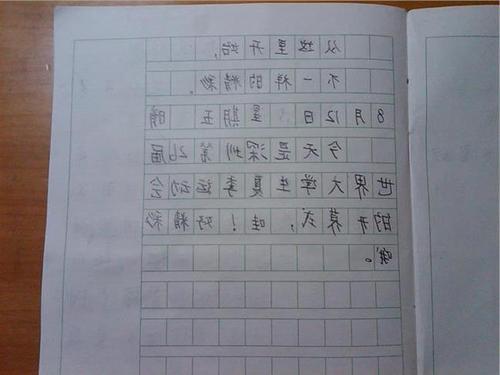 从这里开始,
不一样的精彩。
8月12日 星期五 晴
今天是深圳第26届
世界大学生夏季运动会
的开幕式,哇!好精彩